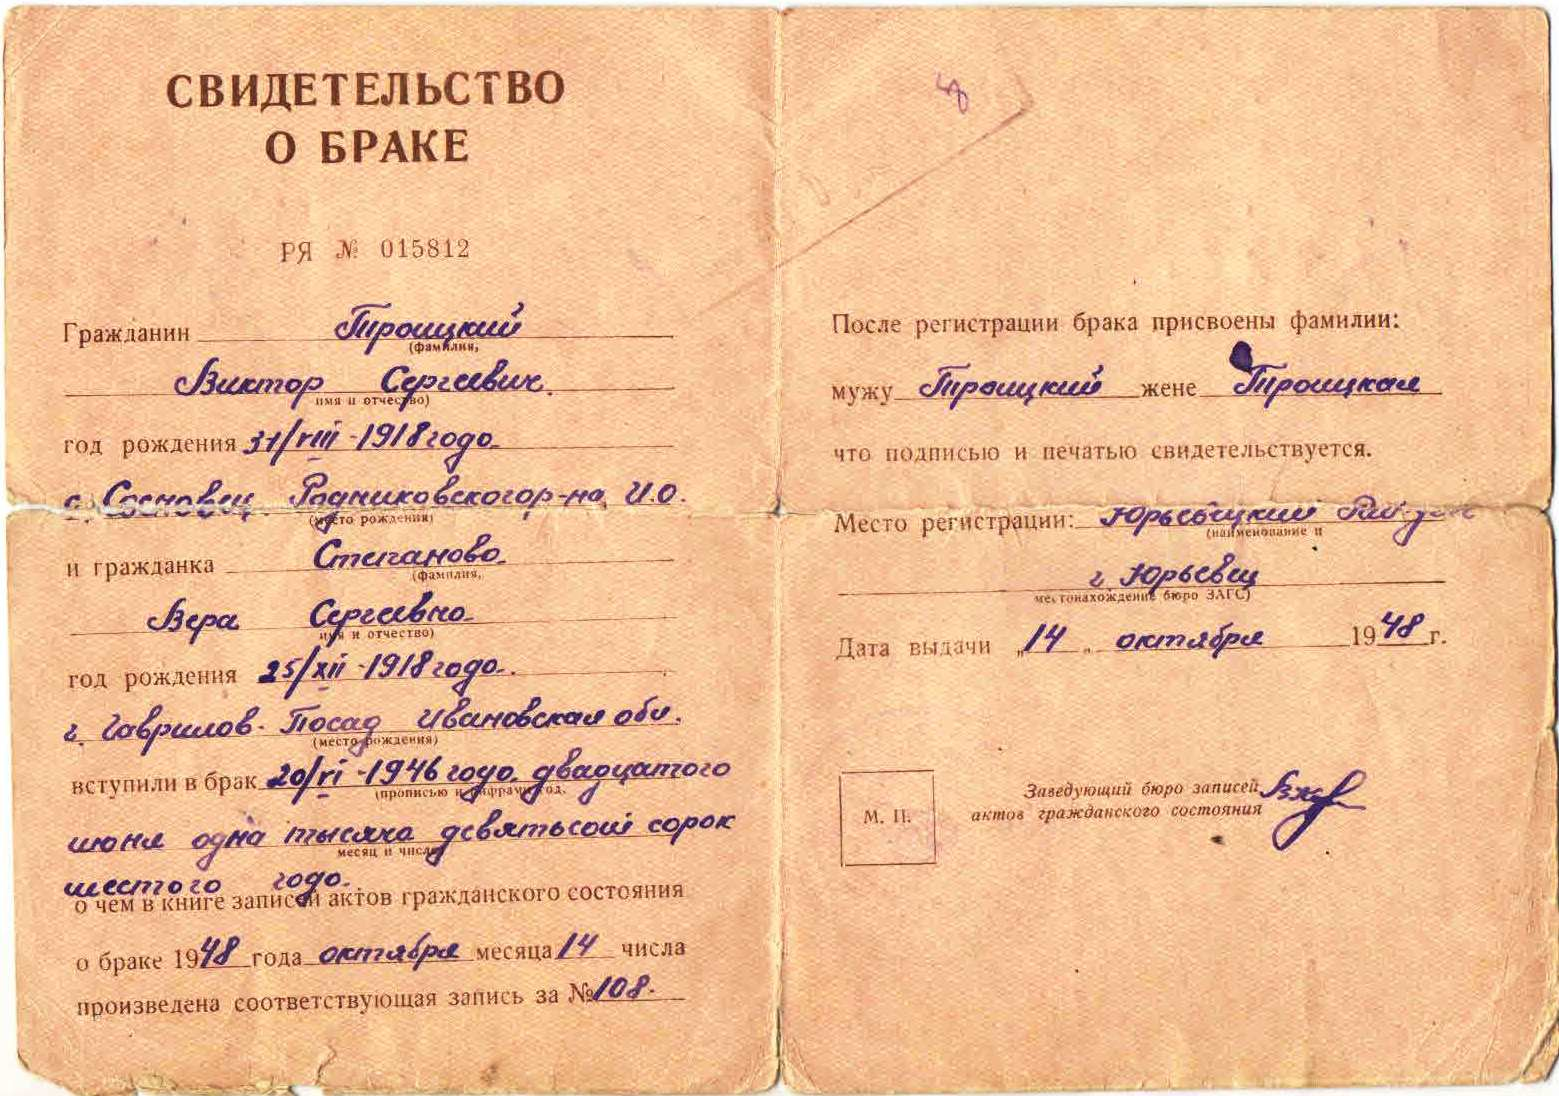 СВИДЕТЕЛЬСТВО
О БРАКЕ
РЯ № 015812
Гражданин Троицкий
(фамилия,
Виктор Сергеевич.
имя и отчество)
год рождения 31/VIII - 1918 года
с. Сосновец Родниковского р-на, И.О.
(место рождения)
и гражданка Степанова
(фамилия,
Вера Сергеевна
имя и отчество)
год рождения 25/XII - 1918 года.
г. Гаврилов-Посад Ивановская обл.
(место рождения)
вступили в брак 20/VI - 1946 года двадцатого
(прописью и цифрами год,
июня одна тысяча девятьсот сорок
месяц и число)
шестого года.
о чем в книге записей актов гражданского состояния
о браке 1948 года октября месяца 14 числа
произведена соответствующая запись за № 108.
8
После регистрации брака присвоены фамилии:
мужу Троицкий жене Троицкая
что подписью и печатью свидетельствуется.
Место регистрации: Юрьевецкий
(наименование и
г. Юрьевец
местонахождение бюро ЗАГС)
Дата выдачи „14„ октября 1948 г.
М. П.
Заведующий бюро записей
актов гражданского состояния